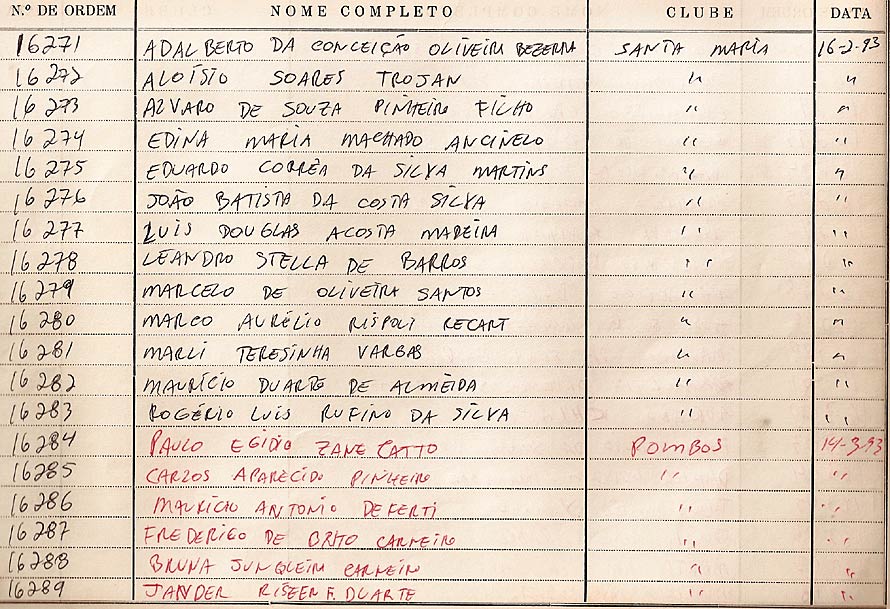 N.º DE ORDEM NOME COMPLETO CLUBE DATA
16271 ADALBERTO DA CONCEIÇÃO OLIVEIRA BEZERRA SANTA MARIA 16-2-93
16272 ALOÍSIO SOARES TROJAN " "
16273 ALVARO DE SOUZA PINHEIRO FILHO " "
16274 EDINA MARIA MACHADO ANCINELO " "
16275 EDUARDO CORRÊA DA SILVA MARTINS " "
16276 JOÃO BATISTA DA COSTA SILVA " "
16277 LUIS DOUGLAS ACOSTA MADEIRA " "
16278 LEANDRO STELLA DE BARROS " "
16279 MARCELO DE OLIVEIRA SANTOS " "
16280 MARCO AURÉLIO RISPOLI RECART " "
16281 MARLI TERESINHA VARGAS " "
16282 MAURÍCIO DUARTE DE ALMEIDA " "
16283 ROGÉRIO LUIS RUFINO DA SILVA " "
16284 PAULO EGIDIO ZANE CATTO POMBOS 14-3-93
16285 CARLOS APARECIDO PINHEIRO " "
16286 MAURÍCIO ANTONIO DEFERTI " "
16287 FREDERIGO DE BRITO CARNEIRO " "
16288 BRUNA JUNQUEIRA CARNEIRO " "
16289 JANDER F. DUARTE " "